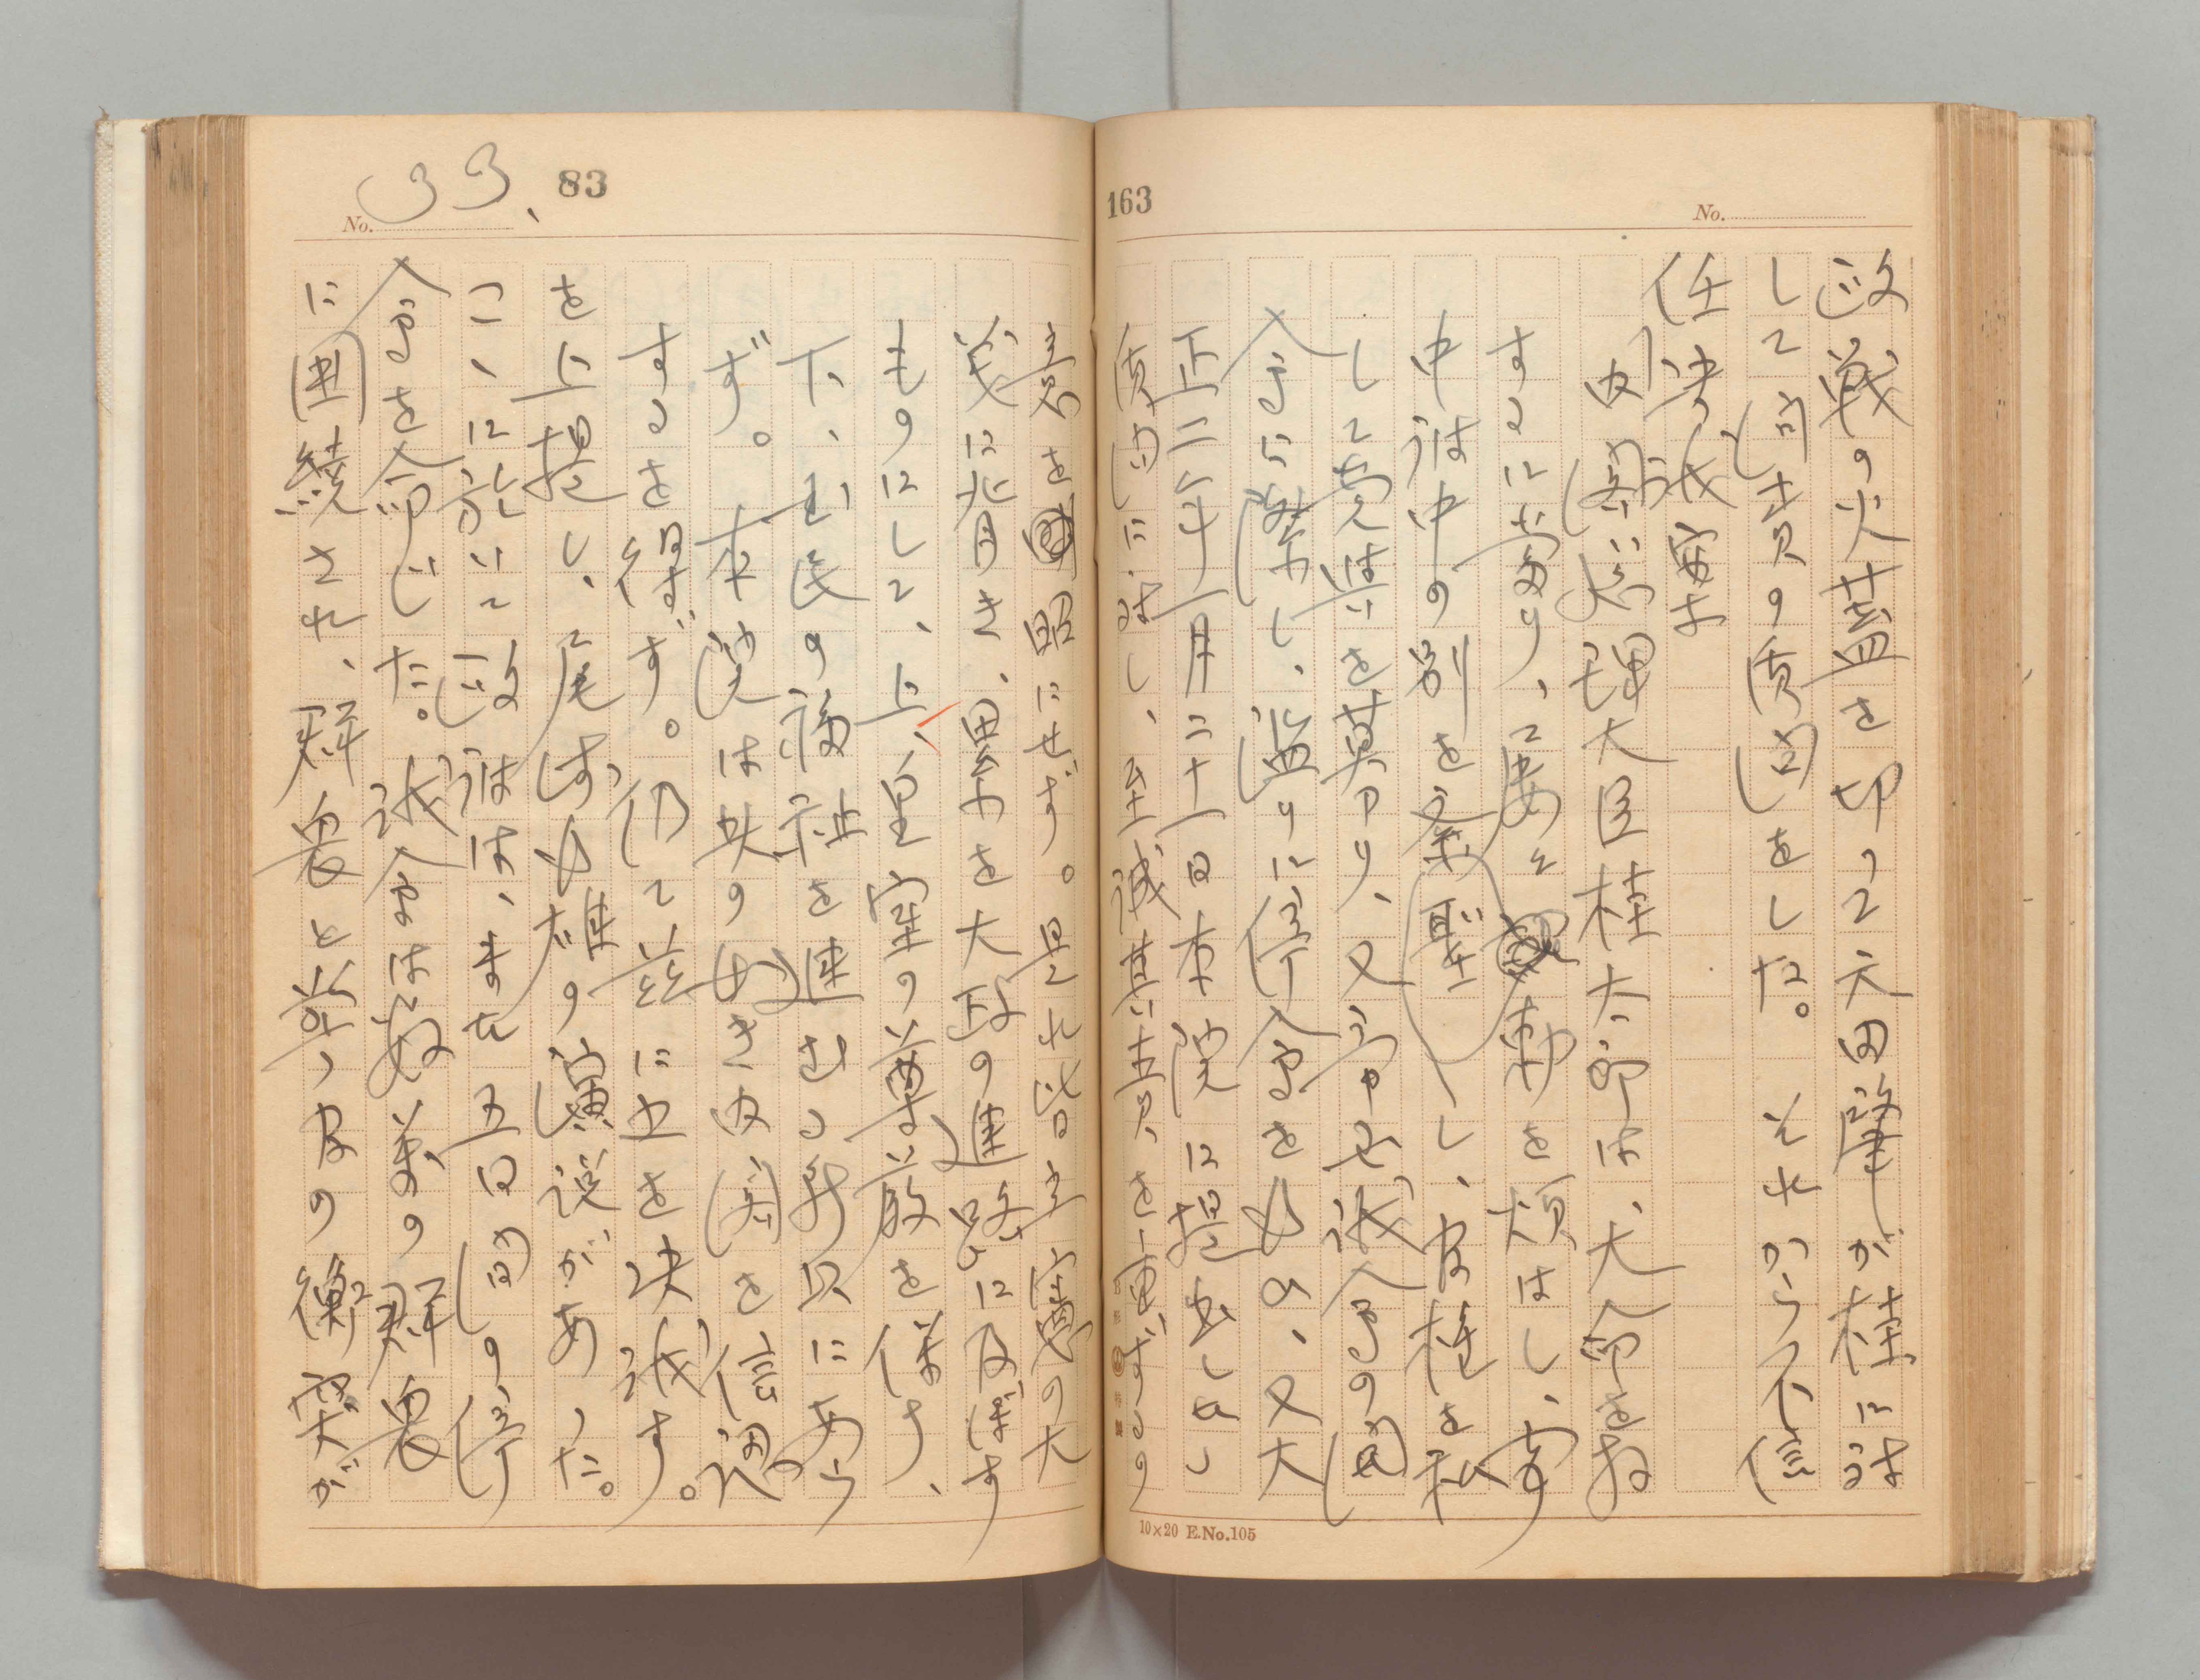 163
No.
政戦の火蓋を切って元田肇が桂に対
して問責の質問をした。それから不信
任決議案は
内閣総理大臣桂太郎は、大命を拝
するに当り、屡々聖勅を煩はし、宮
中府中の別を紊乱し、官権を私
して党与を募り、又濫りに停会を
命ぜられ、又大
正二年一月二十一日本院に提出したし
質問に対し、至誠其責を重ずるの
10×20 E.No.105
No. 33、 83
意志を明昭にせず。是れ皆立憲の大
義に背き、累を大政の進路に及ぼす
ものにして、上、皇室の尊厳を保ち、
下、国民の福祉を進むる所以にあら
ず。本院は此の如き内閣を信認
するを得ず。仍て茲に之を決議す。
を上提し、尾崎の雄の演説があった。
こゝに於いて政府は、また五日間の停
会を命じた。議会は数万の群衆
に囲繞され、群衆と警官の衝突が